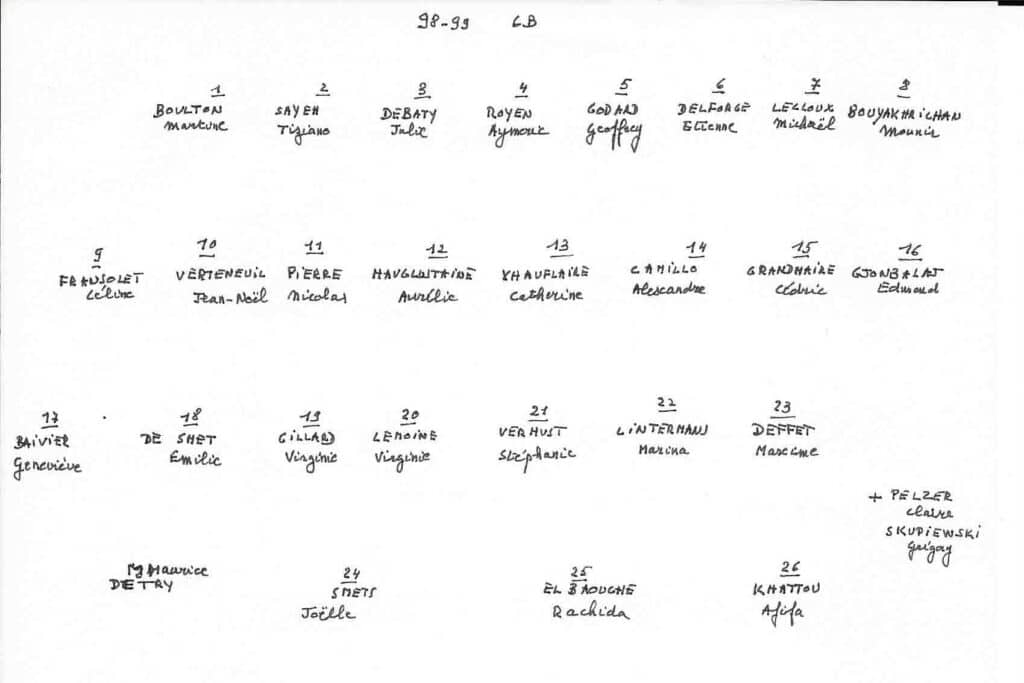 98-99 6B
1 2 3 4 5 6 7 8
BOULTON SAYEH DEBATY ROYEN GODARD DELFORGE LECLOUX BOUYAKHRICHAN
Martine Tiziano Julie Aymeric Geoffrey Etienne Michaël Mounir
9 10 11 12 13 14 15 16
FRANSOLET VERTENEUIL PIERRE HAUGLUSTAINE XHAUFLAIRE CAMILLO GRANDHAIRE GJONBALAJ
Céline Jean-Noël Nicolas Aurélie Catherine Alexandre Cédric Edmond
17 18 19 20 21 22 23
BAIVIER DE SMET GILLARD LEMOINE VERHUST LINTERMANS DEFFET
Geneviève Emilie Virginie Virginie Stéphanie Marina Maxime
+ PELZER
Claire
SKUPIEWSKI
Grégory
Maurice 24 25 26
DETRY SMETS EL BAOUCHE KHATTOU
Joëlle Rachida Afifa